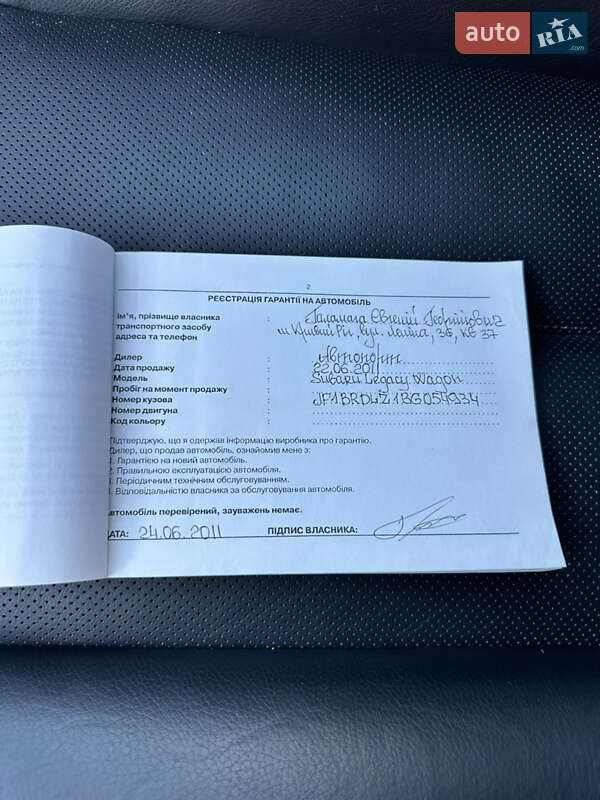 auto RIA .com
2
РЕЄСТРАЦІЯ ГАРАНТІЇ НА АВТОМОБІЛЬ
Ім'я, прізвище власника : Євгеній Георгійович
транспортного засобу м. Кривий Ріг, вул. Леніна, 36, кв 37
адреса та телефон
Дилер : Автопорт
Дата продажу : 22.06.2011
Модель : Subaru Legacy Wagon
Пробіг на момент продажу :
Номер кузова : JF1BRDLZ1BG054934
Номер двигуна :
Код кольору :
Підтверджую, що я одержав інформацію виробника про гарантію.
Дилер, що продав автомобіль, ознайомив мене з:
1. Гарантією на новий автомобіль.
2. Правильною експлуатацією автомобіля.
3. Періодичним технічним обслуговуванням.
4. Відповідальністю власника за обслуговування автомобіля.
Автомобіль перевірений, зауважень немає.
ДАТА: 24.06.2011 ПІДПИС ВЛАСНИКА: